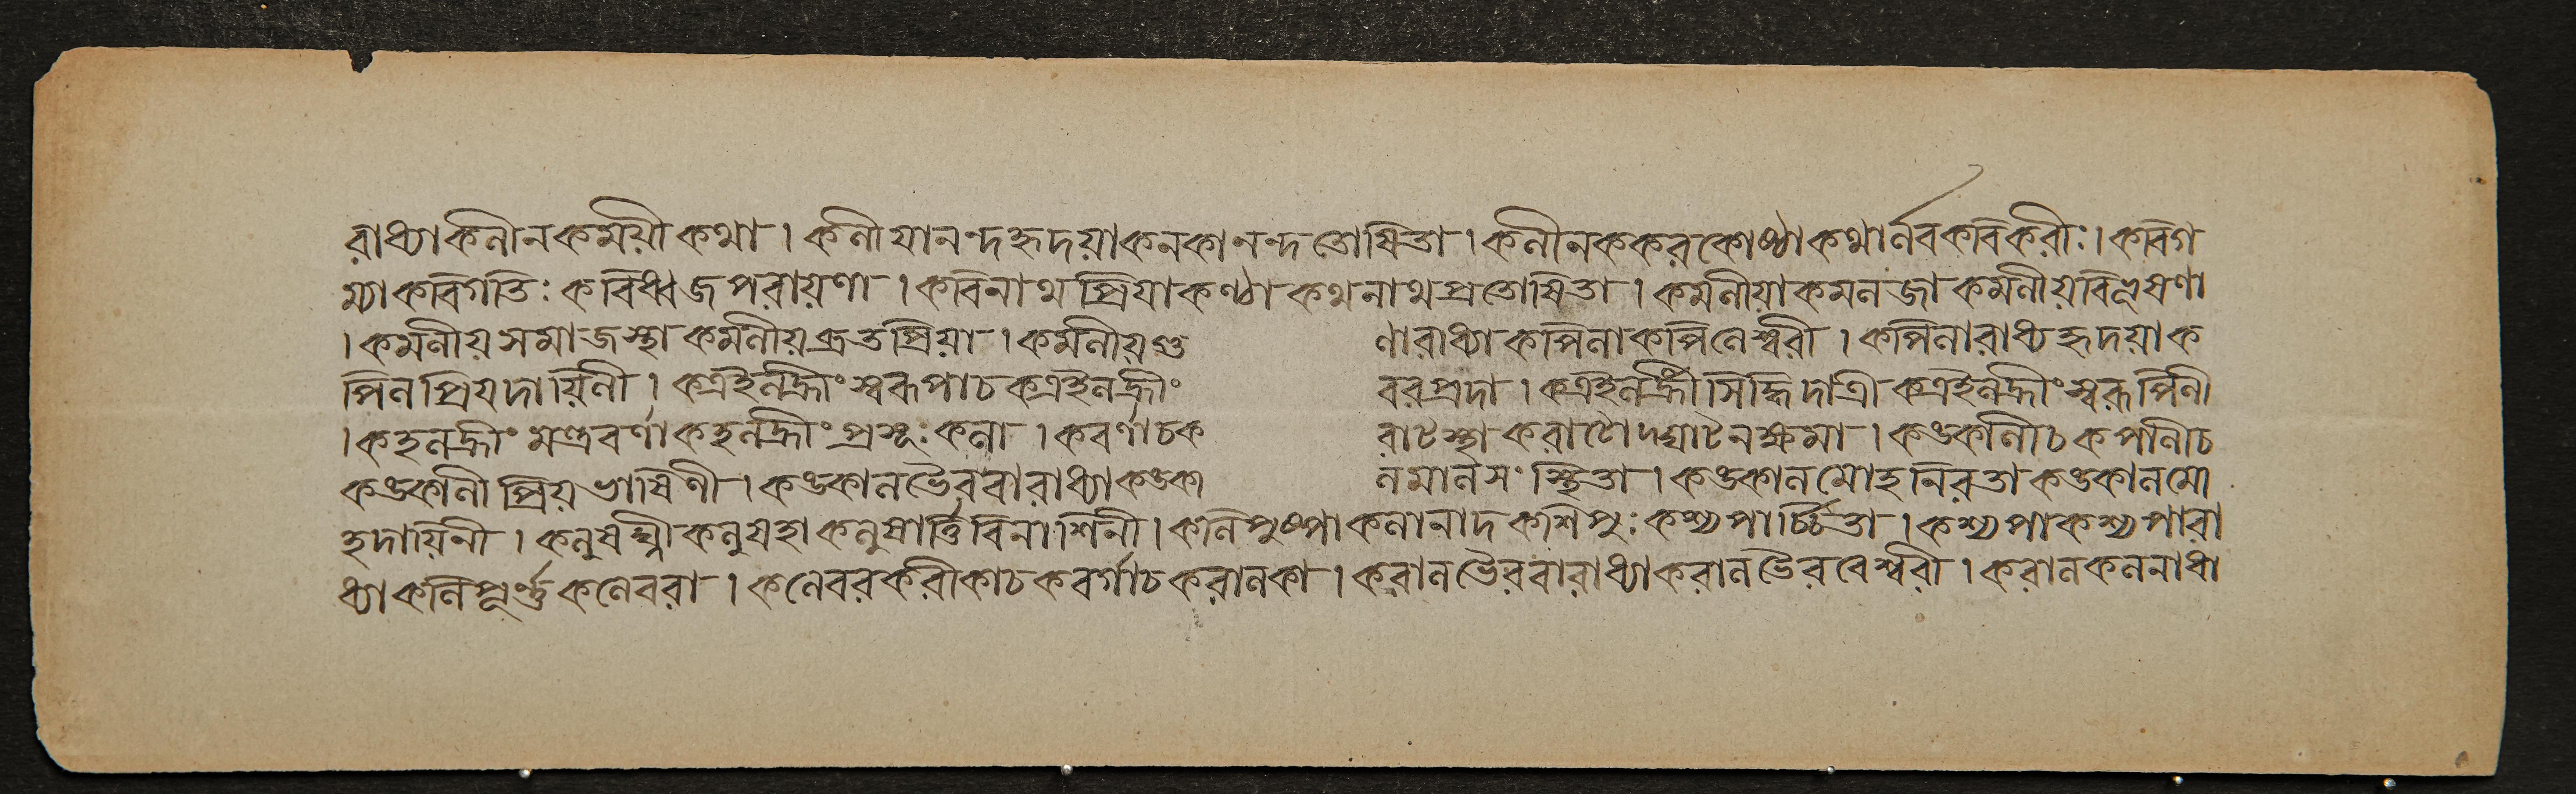 রাধ্যাকলীনকময়ী কথা । কলীয়ানন্দহৃদয়াকলকানন্দতোষিতা । কলীনককরকোণ্থা কথার্নবকবিকরীঃ । কবিগ
ম্যাকবিগতিঃ কবিধ্বজপরায়ণা । কবিনাথপ্রিয়াকণ্ঠা কথনাথপ্রতোষিতা । কমনীয়াকমনজা কমনীয়বিভূষণা
। কমনীয়সমাজস্থা কমনীয়ব্রতপ্রিয়া । কমনীয়গু ণারাধ্যা কপিলাকপিলেশ্বরী । কপিলারাধ্যহৃদয়াক
পিলপ্রিয়দায়িনী । কএইলহ্রীংস্বরূপাচ কএইলহ্রীং বরপ্রদা । কএইলহ্রীংসিদ্ধিদাত্রী কএইলহ্রীংস্বরূপিণী
। কহলহ্রীংমন্ত্রবর্ণা কহলহ্রীংপ্রসূঃ কলা । কবর্ণাচক বাটস্থা কবাটোদ্ঘাটনক্ষমা । কঙ্কালীচ কপালীচ
কঙ্কালী প্রিয়ভাষিণী । কঙ্কালভৈরবারাধ্যা কঙ্কা লমানসংস্থিতা । কঙ্কালমোহনিরতা কঙ্কালমো
হদায়িনী । কলুষঘ্নী কলুষহা কলুষার্ত্তিবিনাশিনী । কলিপুষ্পা কলানাদকশিপুঃ কশ্যপার্চ্চিতা । কশ্যপা কশ্যপারা
ধ্যা কলিপূর্ণ্ণকলেবরা । কলেবরকরীকাচ কবর্গাচ করালকা । করালভৈরবারাধ্যা করালভৈরবেশ্বরী । করালকলনাধা